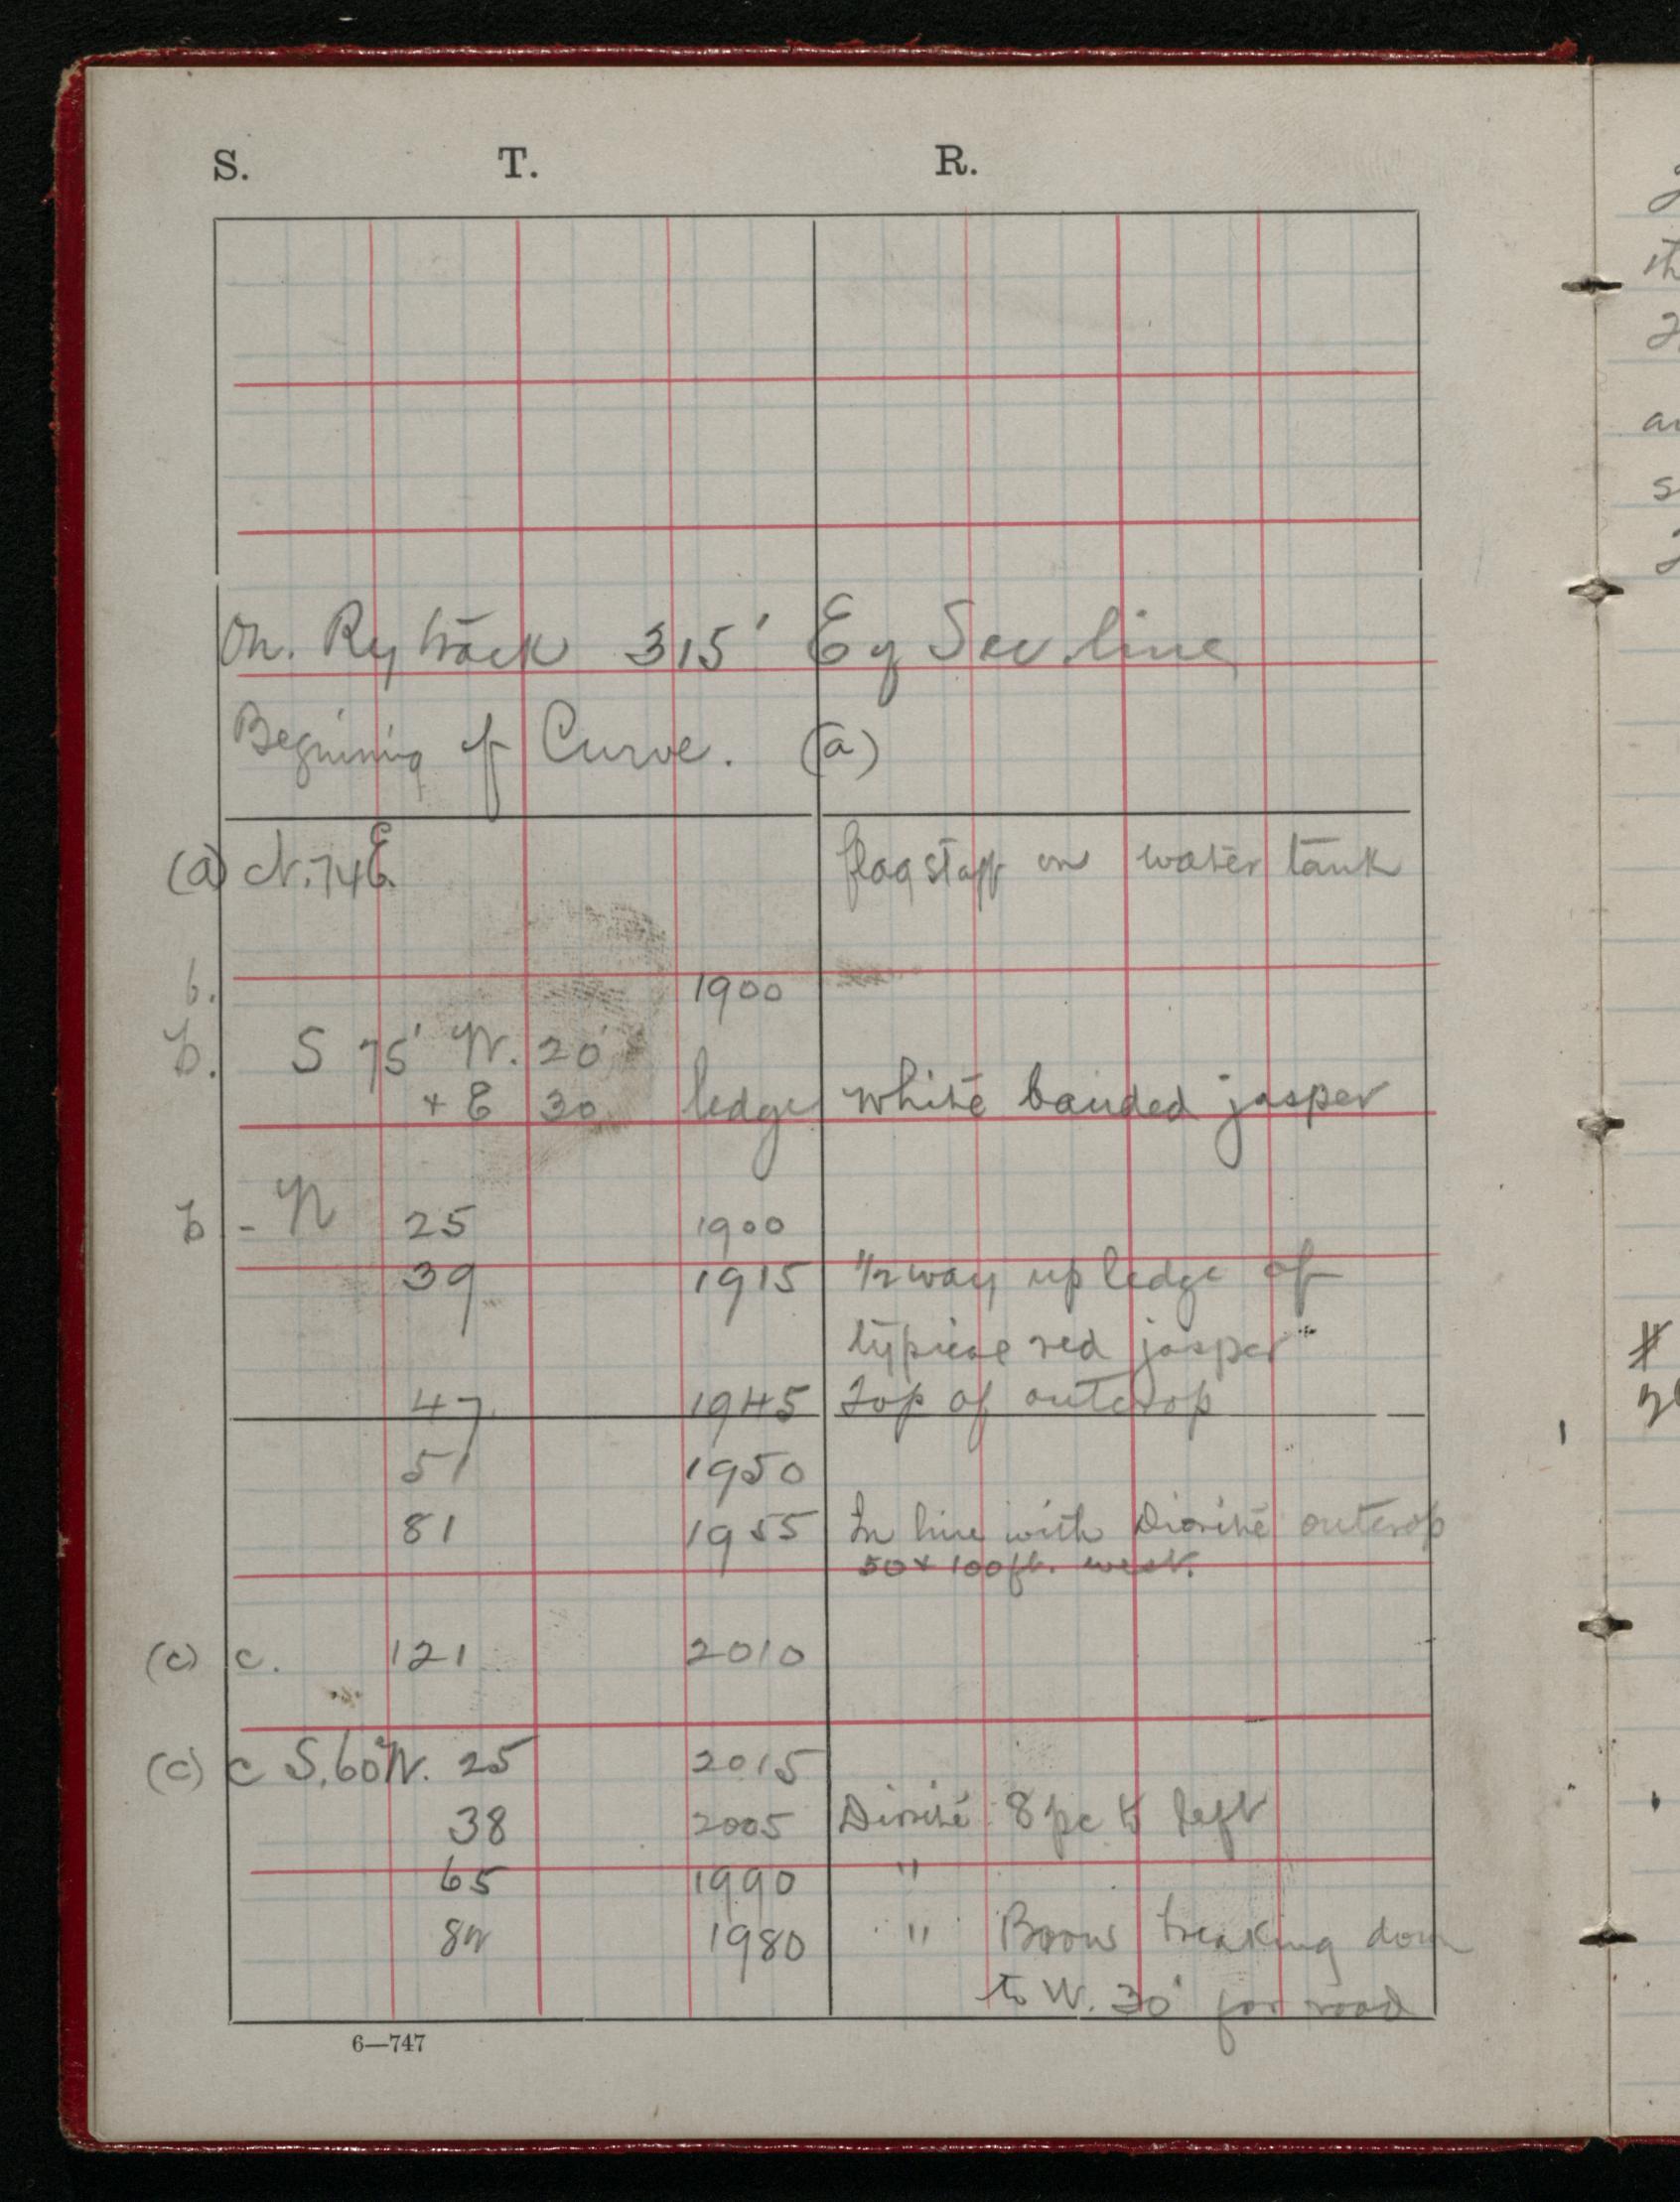 S. T. R.
On. Ry track 315' E of Sec. line
Begining of Curve. (a)
(a) N. 74 E. flagstaff on water tank
b. 1900
b. S 75 W. 20'
+ E 30 ledge white banded jasper
b - N 25 1900
39 1915 1/2 way up ledge of
typical red jasper
47 1945 Top of outcrop
51 1950
81 1955 In line with Diorite outcrop
50 + 100 ft. west.
(c) c. 121 2010
(c) c S. 60° W. 25 2015
38 2005 Diorite 8 pc to left
65 1990 "
1980 " Brow breaking down
to W. 30' for road
6—747